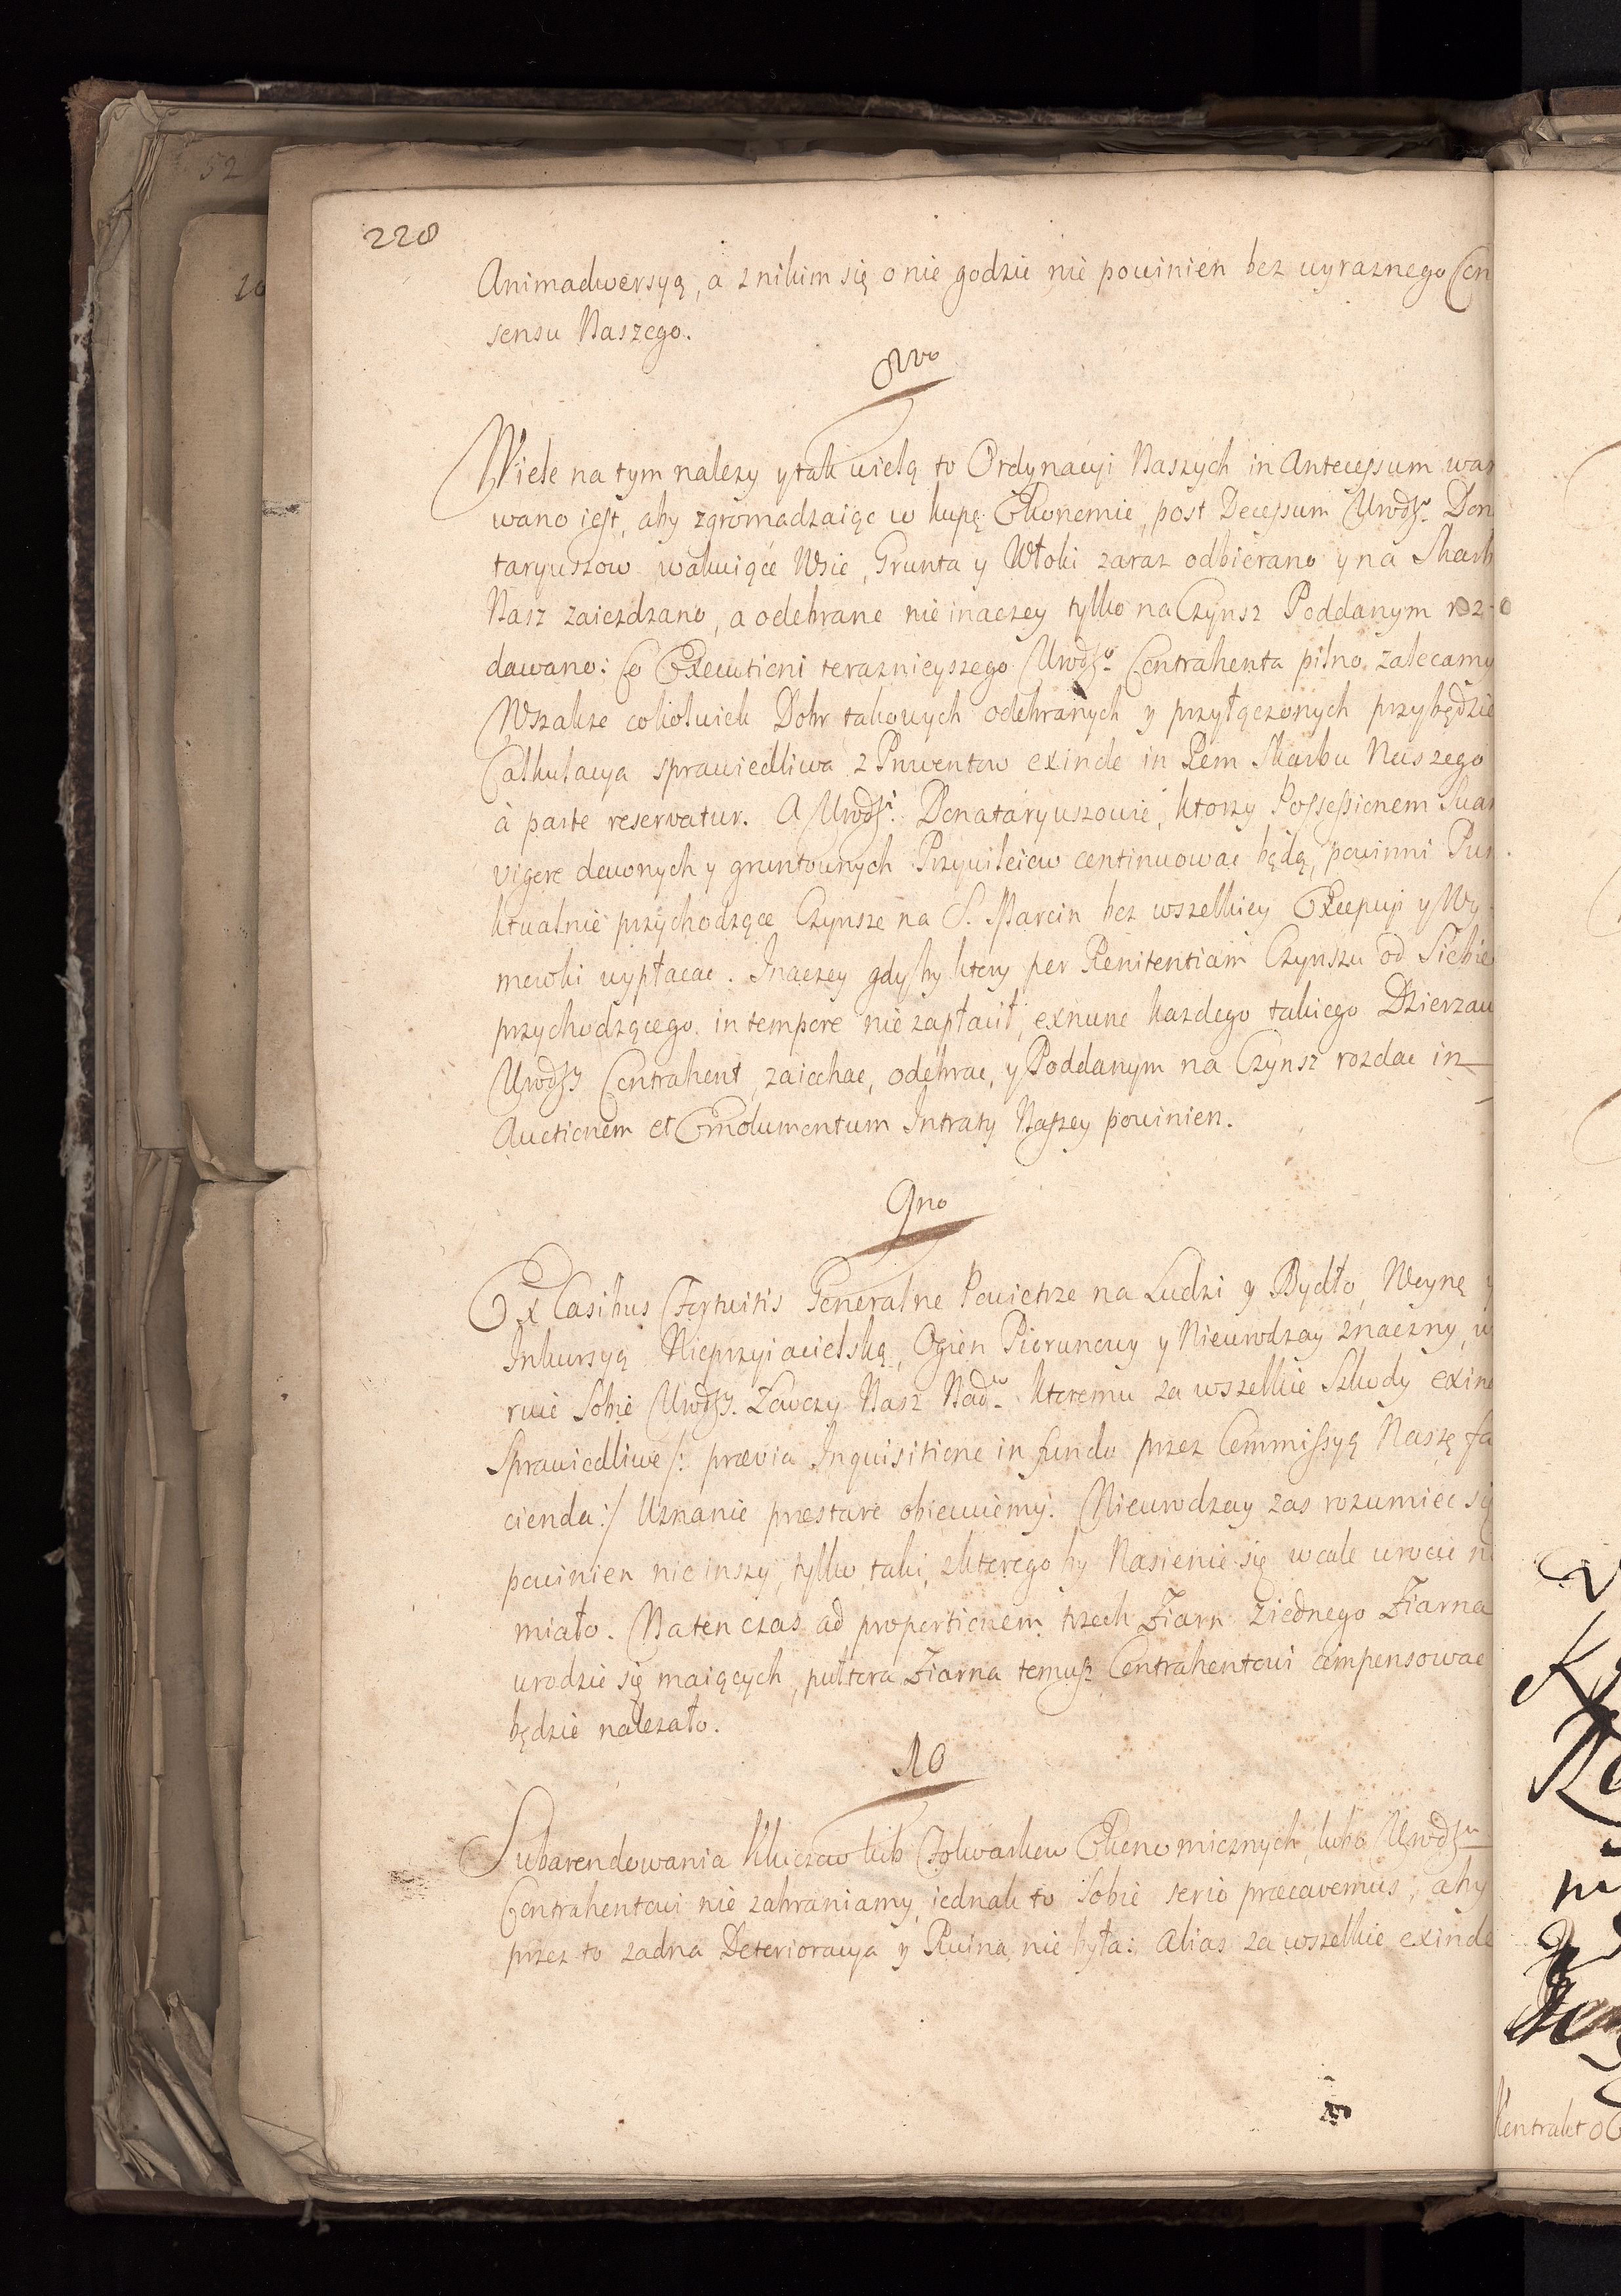 220
Animadwersyą, a z nikim się o nie godzić nie powinien bez wyraznego Con
sensu Naszego.
8vo
Wiele na tym nalezy y tak wielą to Ordynacyi Naszych in Antecessum war
wano iest, aby zgromadzaiąc w kupę Ekonomie, post Decessum Urodzo. Don
taryuszow wakuiące Wsie, Grunta y Włoki zaraz odbierano y na Skarb
Nasz zaiezdzano, a odebrane nie inaczey tylko na Czynsz Poddanym roz-
dawano: Co Executioni teraznieyszego Urodzo. Contrahenta pilno zalecamy
Wszakze cokolwiek Dobr takowych odebranych y przyłączonych przybędzie
Calkulacya sprawiedliwa z Inwentow exinde in Rem Skarbu Naszego
à parte reservatur. A Urodzi. Donataryuszowie, ktorzy Possessionem Suar
vigore dawnych y gruntownych Przywileiow continuowac będą, powinni Pun
ktualnie przychodzące Czynsze na S. Marcin bez wszelkiey Excepcyi y Wy
mowki wypłacac. Inaczey gdyby ktory per Renitentiam Czynszu od Siebie
przychodzącego in tempore nie zapłacił, exnunc kazdego takiego Dzierzaw
Urodzy Contrahent, zaiechac, odebrac, y Poddanym na Czynsz rozdac in
Auctionem et Emolumentum Intraty Naszey powinien.
9no
Ex Casibus Fortuitis Generalne Powietrze na Ludzi y Bydło, Woynę y
Inkursyą Nieprzyiacielską, Ogien Piorunowy y Nieurodzay znaczny, w
ruie Sobie Urodzy. Łowczy Nasz Nadw. ktoremu za wszelkie Szkody exin
Sprawiedliwe /: prævia Inquisitione in fundo przez Commissyą Naszę fa
cienda :/ Uznanie præstare obiecuiemy. Nieurodzay zas rozumiec się
powinien nie inszy, tylko taki, z ktorego by Nasienie się wcale wrocic ni
miało. Na ten czas ad proportionem trzech Ziarn z iednego Ziarna
urodzic się maiących, pułtora Ziarna temusz Contrahentowi compensowac
będzie nalezało.
10
Subarendowania Kluczow lub Folwarkow Ekonomicznych, lubo Urodzu
Contrahentowi nie zabraniamy, iednak to Sobie serio præcavemus, aby
przez to zadna Deterioracya y Ruina nie była: Alias za wszelkie exinde